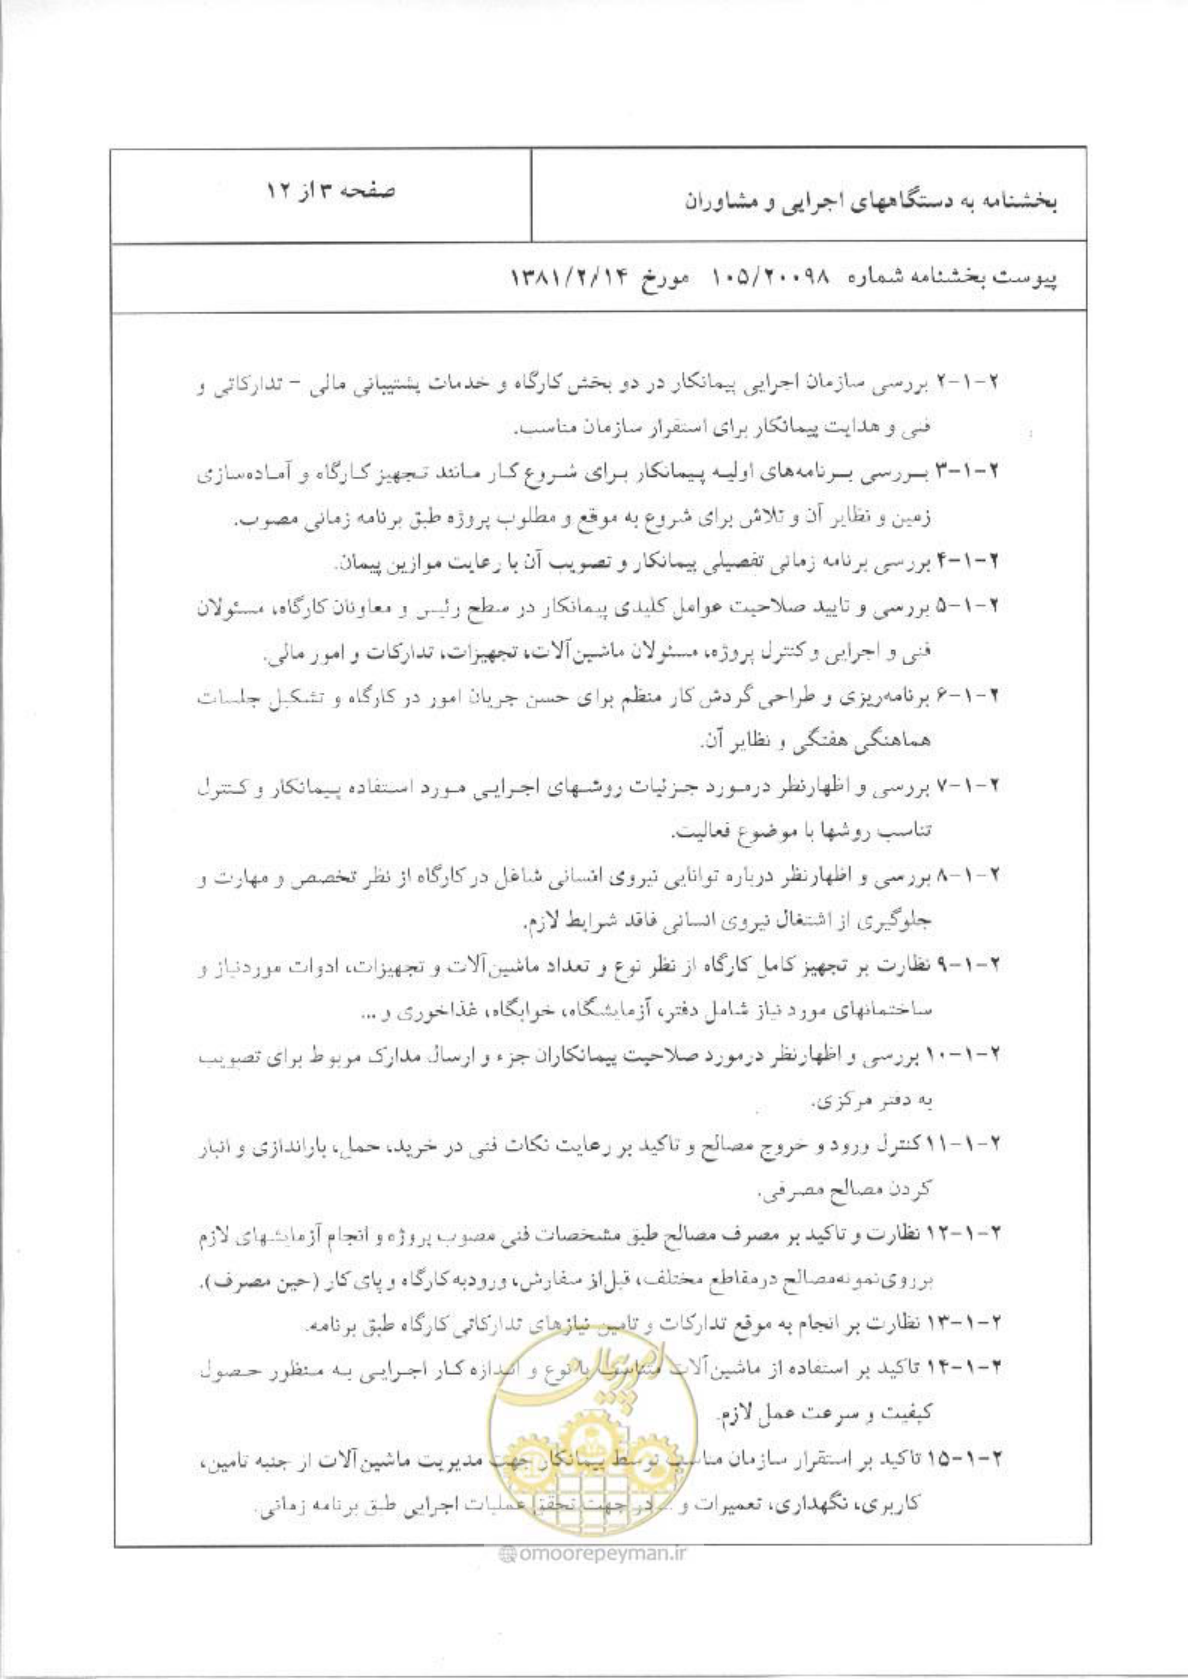 بخشنامه به دستگاههای اجرایی و مشاوران
صفحه ۳ از ۱۲
پیوست بخشنامه شماره ۱۰۵/۲۰۰۹۸ مورخ ۱۳۸۱/۲/۱۴
۲-۱-۲ بررسی سازمان اجرایی پیمانکار در دو بخش کارگاه و خدمات پشتیبانی مالی - تدارکاتی و
فنی و هدایت پیمانکار برای استقرار سازمان مناسب.
۲-۱-۳ بررسی برنامه‌های اولیه پیمانکار برای شروع کار مانند تجهیز کارگاه و آماده‌سازی
زمین و نظایر آن و تلاش برای شروع به موقع و مطلوب پروژه طبق برنامه زمانی مصوب.
۲-۱-۴ بررسی برنامه زمانی تفصیلی پیمانکار و تصویب آن با رعایت موازین پیمان.
۲-۱-۵ بررسی و تایید صلاحیت عوامل کلیدی پیمانکار در سطح رئیس و معاونان کارگاه، مسئولان
فنی و اجرایی و کنترل پروژه، مسئولان ماشین‌آلات، تجهیزات، تدارکات و امور مالی.
۲-۱-۶ برنامه‌ریزی و طراحی گردش کار منظم برای حسن جریان امور در کارگاه و تشکیل جلسات
هماهنگی هفتگی و نظایر آن.
۲-۱-۷ بررسی و اظهارنظر درمورد جزئیات روشهای اجرایی مورد استفاده پیمانکار و کنترل
تناسب روشها با موضوع فعالیت.
۲-۱-۸ بررسی و اظهارنظر درباره توانایی نیروی انسانی شاغل در کارگاه از نظر تخصص و مهارت و
جلوگیری از اشتغال نیروی انسانی فاقد شرایط لازم.
۲-۱-۹ نظارت بر تجهیز کامل کارگاه از نظر نوع و تعداد ماشین‌آلات و تجهیزات، ادوات موردنیاز و
ساختمانهای مورد نیاز شامل دفتر، آزمایشگاه، خوابگاه، غذاخوری و ...
۲-۱-۱۰ بررسی و اظهارنظر درمورد صلاحیت پیمانکاران جزء و ارسال مدارک مربوط برای تصویب
به دفتر مرکزی.
۲-۱-۱۱ کنترل ورود و خروج مصالح و تاکید بر رعایت نکات فنی در خرید، حمل، باراندازی و انبار
کردن مصالح مصرفی.
۲-۱-۱۲ نظارت و تاکید بر مصرف مصالح طبق مشخصات فنی مصوب پروژه و انجام آزمایشهای لازم
برروی نمونه‌مصالح درمقاطع مختلف، قبل از سفارش، ورودبه کارگاه و پای کار (حین مصرف).
۲-۱-۱۳ نظارت بر انجام به موقع تدارکات و تامین نیازهای تدارکاتی کارگاه طبق برنامه.
۲-۱-۱۴ تاکید بر استفاده از ماشین‌آلات متناسب با نوع و اندازه کار اجرایی به منظور حصول
کیفیت و سرعت عمل لازم.
۲-۱-۱۵ تاکید بر استقرار سازمان مناسب توسط پیمانکار جهت مدیریت ماشین‌آلات از جنبه تامین،
کاربری، نگهداری، تعمیرات و ... در جهت تحقق عملیات اجرایی طبق برنامه زمانی.
امور پیمان
omoorepeyman.ir